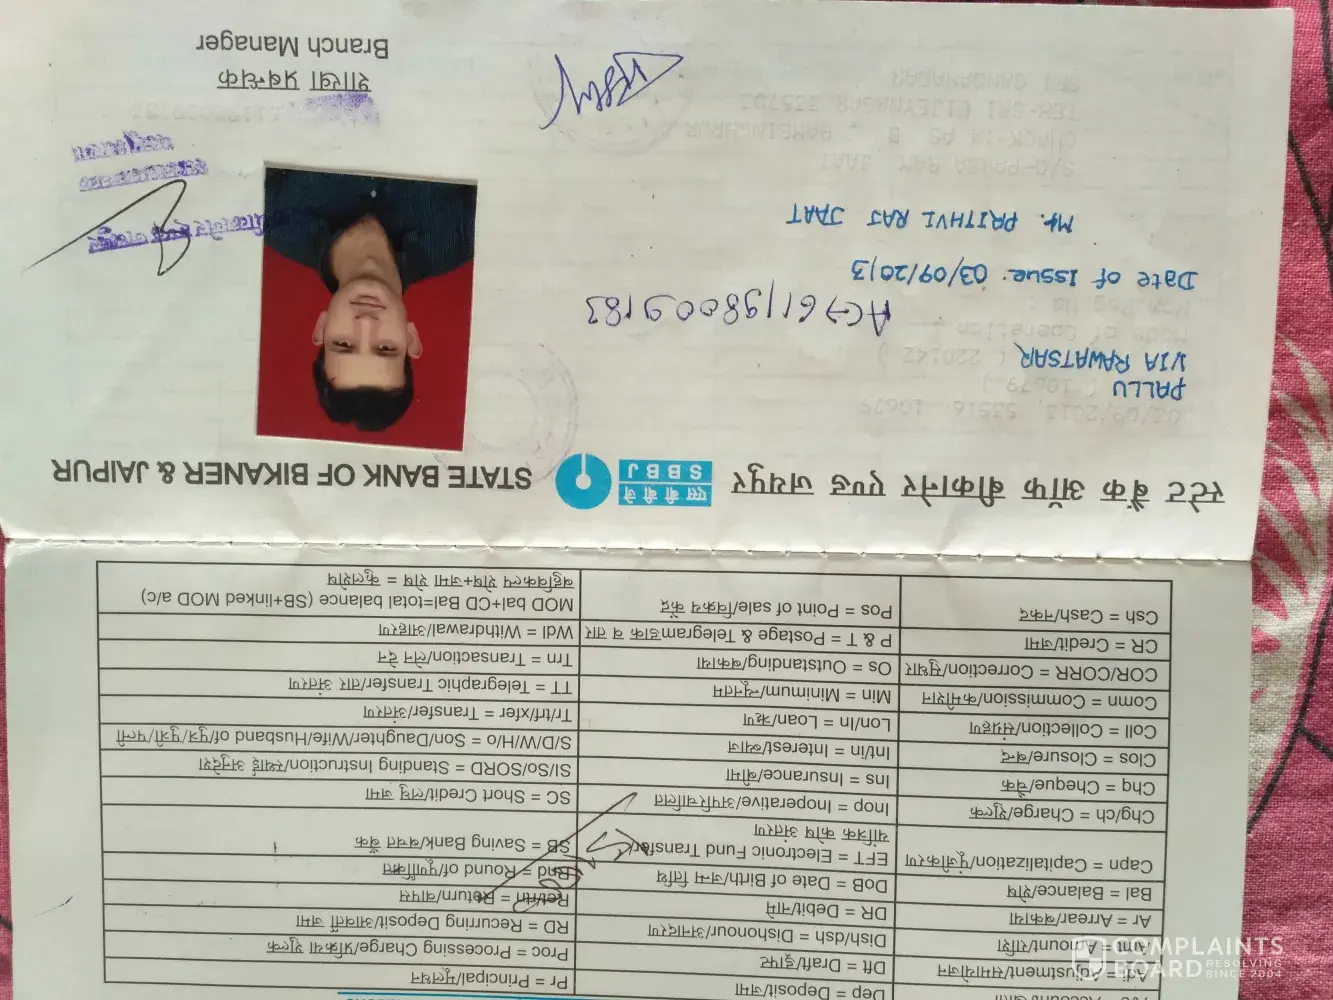 Acc = Account/खाता
Adj = Adjustment/समायोजन
Amt = Amount/राशि
Ar = Arrear/बकाया
Bal = Balance/शेष
Capn = Capitalization/पूंजीकरण
Chg/ch = Charge/शुल्क
Chq = Cheque/चैक
Clos = Closure/बन्द
Coll = Collection/संग्रहण
Comn = Commission/कमीशन
COR/CORR = Correction/सुधार
CR = Credit/जमा
Csh = Cash/नकद
Dep = Deposit/जमा
Dft = Draft/ड्राफ्ट
Dish/dsh = Dishonour/अनादरण
DR = Debit/नामे
DoB = Date of Birth/जन्म तिथि
EFT = Electronic Fund Transfer/
यांत्रिक कोष अंतरण
Inop = Inoperative/अपरिचालित
Ins = Insurance/बीमा
Int/in = Interest/ब्याज
Lon/ln = Loan/ऋण
Min = Minimum/न्यूनतम
Os = Outstanding/बकाया
P & T = Postage & Telegram/डाक व तार
Pos = Point of sale/विक्रय केंद्र
Pr = Principal/मूलधन
Proc = Processing Charge/प्रक्रिया शुल्क
RD = Recurring Deposit/आवर्ती जमा
Ret/rtn = Return/वापस
Rnd = Round of/पूर्णांकित
SB = Saving Bank/बचत बैंक
SC = Short Credit/लघु जमा
SI/So/SORD = Standing Instruction/स्थाई अनुदेश
S/D/W/H/o = Son/Daughter/Wife/Husband of/पुत्र/पुत्री/पत्नी
Tr/trf/xfer = Transfer/अंतरण
TT = Telegraphic Transfer/तार अंतरण
Trn = Transaction/लेन देन
Wdl = Withdrawal/आहरण
MOD bal+CD Bal=total balance (SB+linked MOD a/c)
बहुविकल्प शेष+जमा शेष = कुलशेष
स्टेट बैंक ऑफ बीकानेर एण्ड जयपुर
एस बी बी जे
SBBJ
STATE BANK OF BIKANER & JAIPUR
03/09/2013 53516 10679
( 10679 )
PALLU
VIA RAWATSAR
( 22042 )
Mode of Operation :
Nom Reg No :
AC→61198009183
Date of Issue: 03/09/2013
Mr. PRITHVI RAJ JAAT
S/O-PAHRA RAM JAAT
SRI GANGANAGAR
शाखा प्रबन्धक
Branch Manager
COMPLAINTS
BOARD
RESOLVING
SINCE 2004